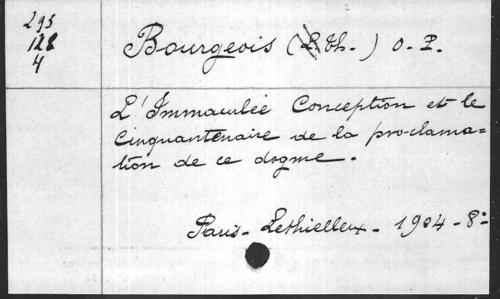 295
128
4
Bourgeois (Th.) O. P.
L'Immaculée Conception et le
Cinquantenaire de la proclama=
tion de ce dogme.
Paris - Lethielleux - 1904 - 8º